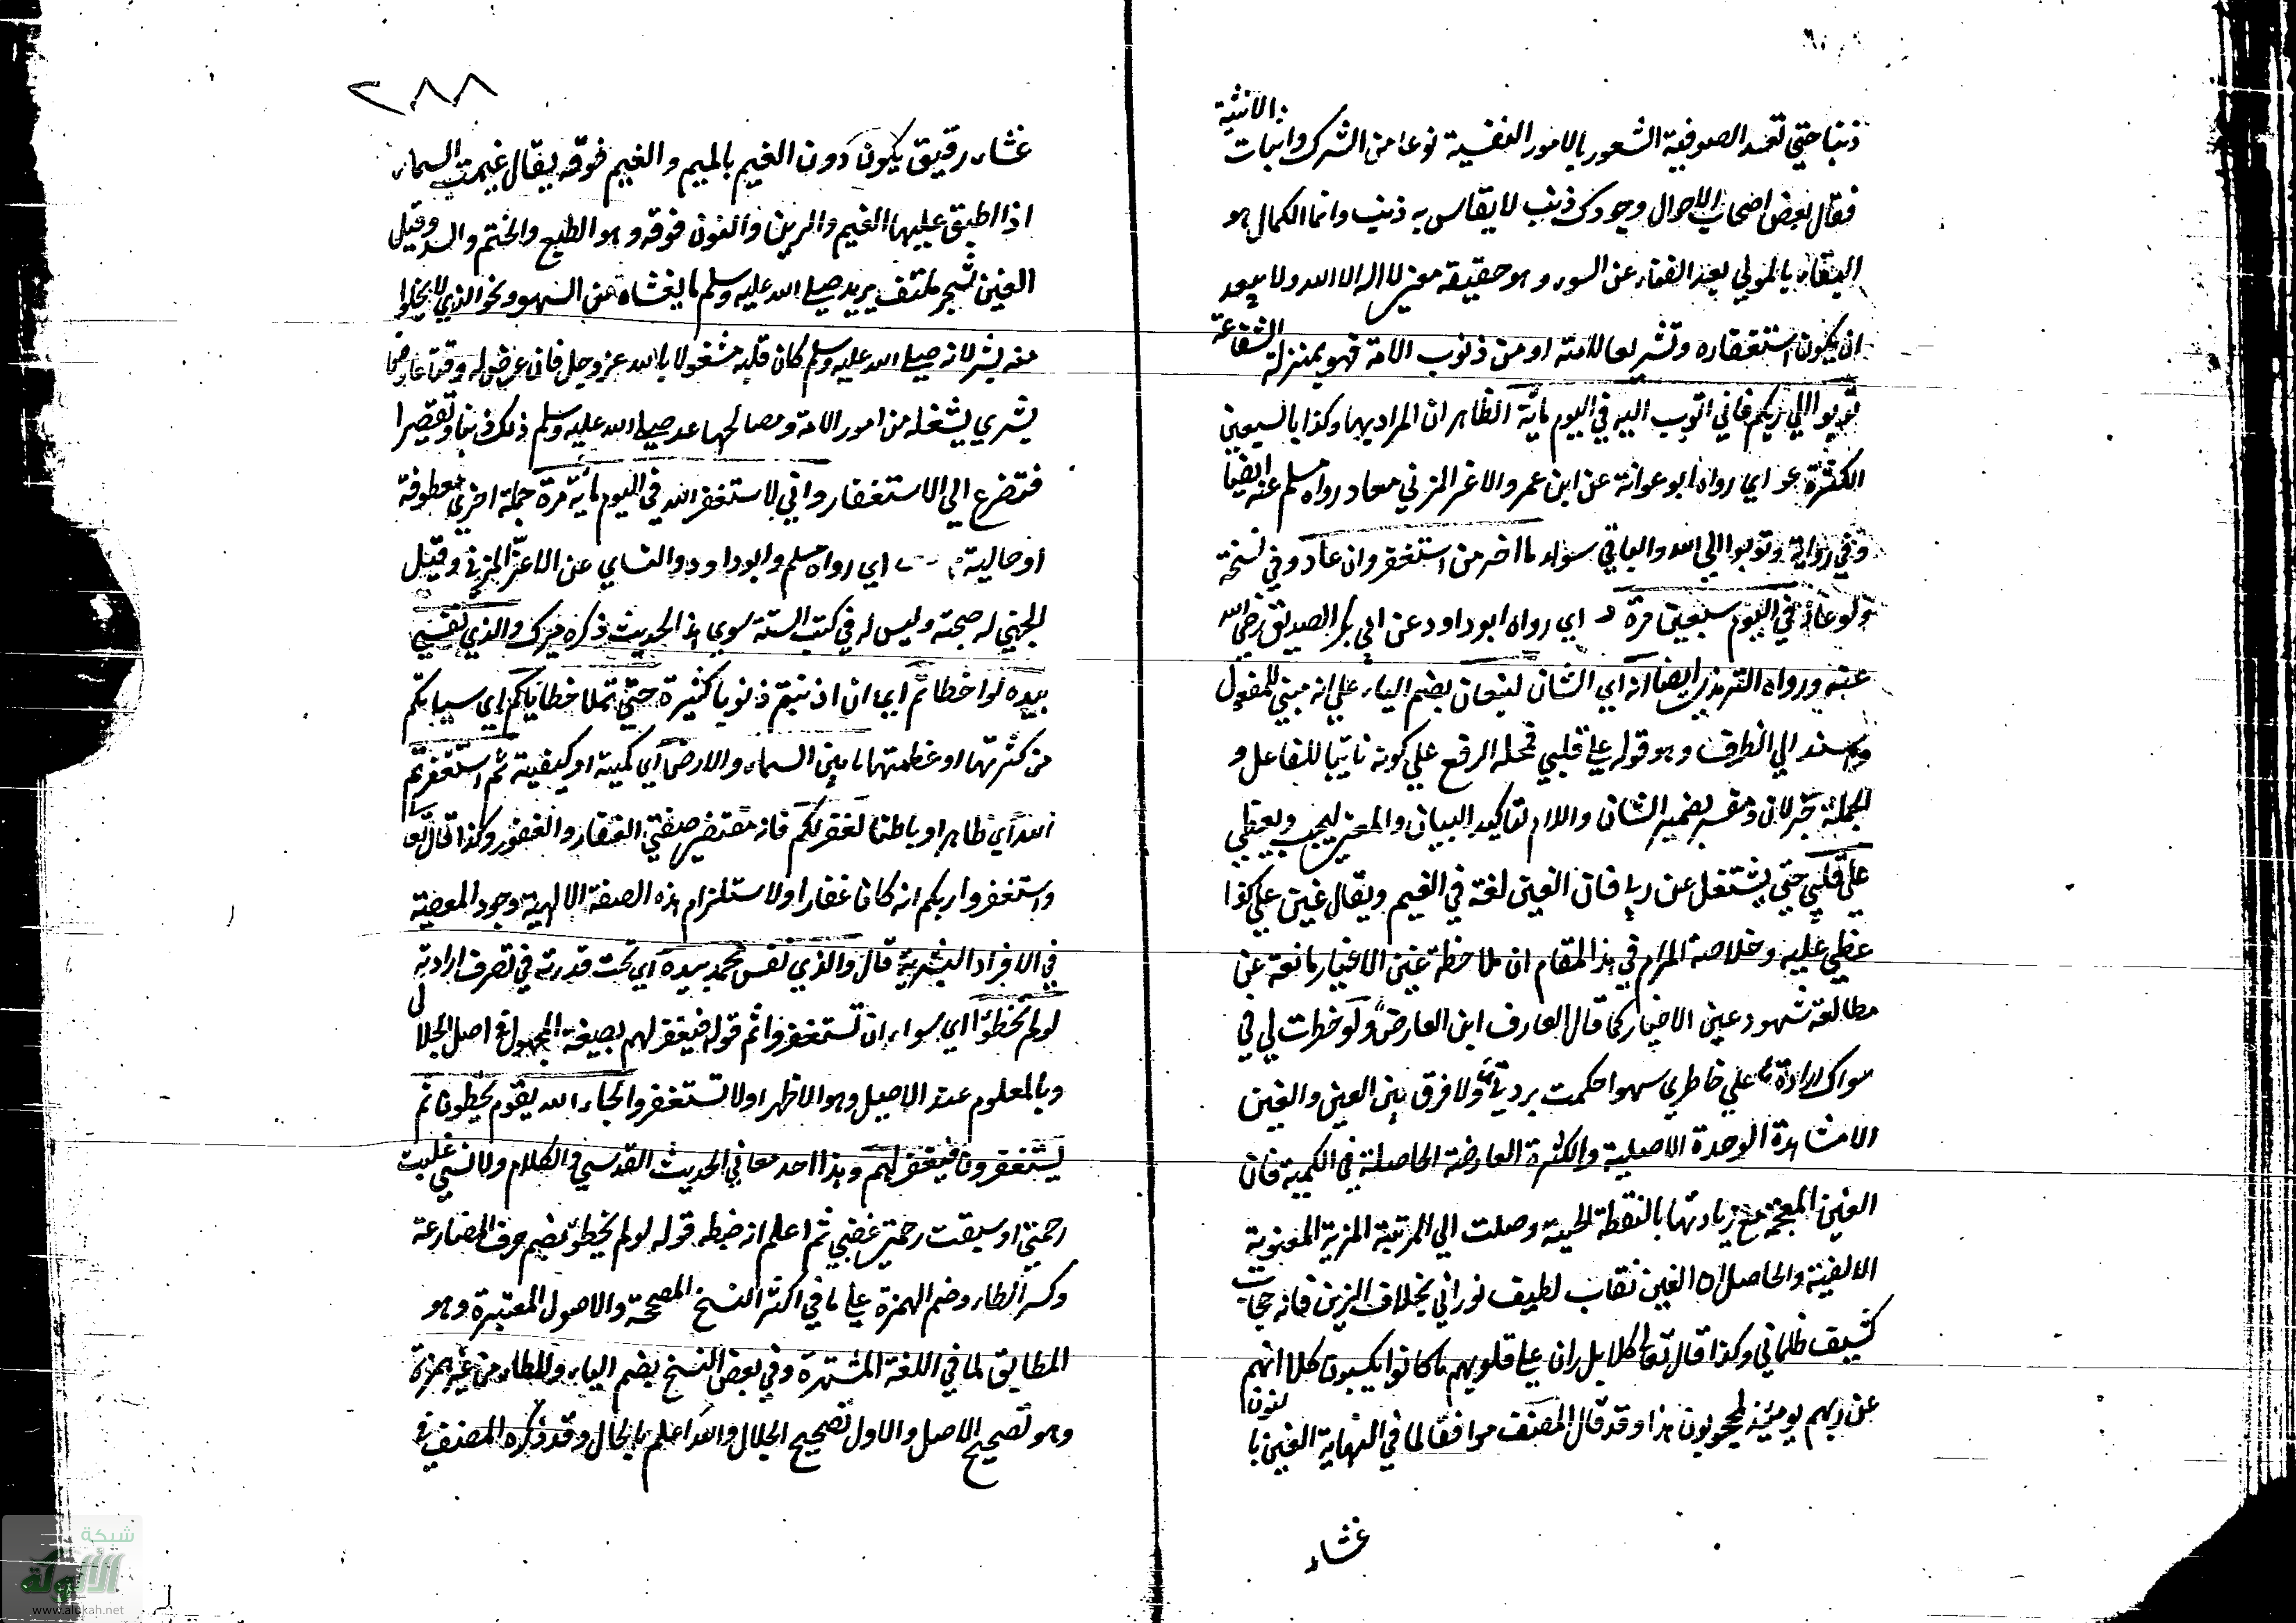 ذنبا حتي تعمد الصوفية الشعور بالامور النفسية نوعا من الشرك واثبات الاثنية
فقال بعض اصحاب الاحوال وجودك ذنب لا يقاس به ذنب وانما الكمال هو
البقاء بالمولي بعد الفناء عن السوء وهو حقيقة معني لا اله الا الله ولا يبعد
ان يكون استغفاره وتشريعا للامته او من ذنوب الامة فهو بمنزلة الشفاعة
توبوا الي ربكم فاني اتوب اليه في اليوم مائة الظاهر ان المراد بهما وكذا بالسبعين
الكثرة عو اي رواه ابو عوانة عن ابن عمر والاغر المزني معا د رواه مسلم عنه ايضا
وفي رواية وتوبوا الي الله والباقي سواء ما اصر من استغفر وان عاد وفي نسخة
ولو عاد في اليوم سبعين مرة د اي رواه ابو داود عن ابي بكر الصديق رضي الله
عنه ورواه الترمذي ايضا انه اي الشان ليغان بضم الياء علي انه مبني للمفعول
واسند الي الظرف وهو قوله علي قلبي فمحله الرفع علي كونه نائبا للفاعل و
الجملة خبر لان ومفسره لضمير الشان واللام لتاكيد البيان والمعني ليحجب ويغطي
علي قلبي حتي يشتغل عن ربي فان الغين لغة في الغيم ويقال غين علي كذا
غطي عليه وخلاصة المرام في هذا المقام ان ملاحظة غين الاغيار مانعة عن
مطالعة شهود عين الاخيار كما قال العارف ابن الفارض ولو خطرت لي في
سواك ارادة علي خاطري سهوا حكمت بردتي ولا فرق بين العين والغين
الا مشاهدة الوحدة الاصلية والكثرة العارضة الحاصلة في الكمية فان
الغين المعجمة مع زيادتها بالنقطة الحسية وصلت الي المرتبة المزية المعنوية
الالفية والحاصل ان الغين نقاب لطيف نوراني بخلاف الرين فانه حجاب
كثيف ظلماني وكذا قال تعالي كلا بل ران علي قلوبهم ما كانوا يكسبون كلا انهم
عن ربهم يومئذ لمحجوبون هذا وقد قال المصنف موافقا لما في النهاية الغين بالنون
غشاء
٢٨٨
غشاء رقيق يكون دون الغيم بالميم والغيم فوقه يقال غيمت السماء
اذا اطبق عليها الغيم والرين والنون فوقه وهو الطبع والختم والسد وقيل
الغين شجر ملتف يريد صلي الله عليه وسلم ما يغشاه من السهو ونحو الذي لا يخلوا
منه بشر لانه صلي الله عليه وسلم كان قلبه مشغولا بالله عز وجل فان عرض له وقتا عارضا
بشري يشغله من امور الامة ومصالحها عد صلي الله عليه وسلم ذلك ذنبا وتقصيرا
فتضرع الي الاستغفار واني لاستغفر الله في اليوم مائة مرة جملة اخري معطوفة
او حالية م د س اي رواه مسلم وابو داود والنساي عن الاغر المزني وقيل
الجهني له صحبته وليس له في كتب الستة سوي هذا الحديث ذكره ميرك والذي نفسي
بيده لو اخطاتم اي ان اذنبتم ذنوبا كثيرة حتي تملا خطاياكم اي سيياتكم
من كثرتها او عظمتها ما بين السماء والارض اي كمية او كيفية ثم استغفرتم
الله اي ظاهرا وباطنا لغفر لكم فانه مقتضي صفتي الغفار والغفور وكذا قال تعالي
واستغفروا ربكم انه كان غفارا ولاستلزام هذه الصفة الالهية وجود المعصية
في الافراد البشرية قال والذي نفس محمد بيده اي تحت قدرته في تصرف ارادته
لو لم تخطؤا اي سواء ان تستغفروا ثم قوله فيغفر لهم بصيغة المجهول في اصل الجلال
وبالمعلوم عند الاصيل وهو الاظهر اولا تستغفروا لجاء الله بقوم يخطون ثم
يستغفرون فيغفر لهم وهذا احد معاني الحديث القدسي والكلام ولا نسي غلبت
رحمتي او سبقت رحمتي غضبي ثم اعلم انه ضبط قوله لو لم تخطؤا بضم حرف المضارعة
وكسر الطاء وضم الهمزة علي ما في اكثر النسخ المصححة والاصول المعتبرة وهو
المطابق لما في اللغة المشتهرة وفي بعض النسخ بضم الياء والطاء من غير همزة
وهو تصحيح الاصل والاول تصحيح الجلال والله اعلم بالحال وقد ذكره المصنف في
شبكة
الألوكة
www.alukah.net